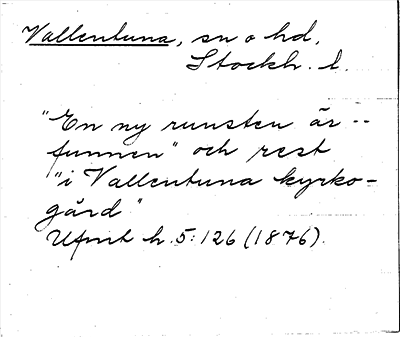 Vallentuna, sn o hd,
Stockh. l.
"En ny runsten är --
funnen" och rest
"i Vallentuna kyrko-
gård"
Ufmt h. 5:126 (1876).